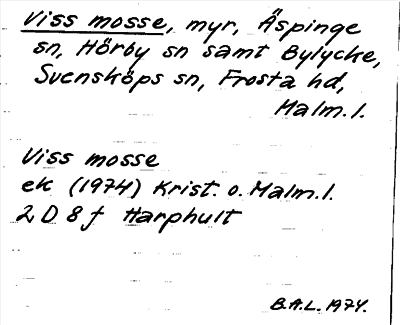 Viss mosse, myr, Äspinge
sn, Hörby sn samt Bylycke,
Svensköps sn, Frosta hd,
Malm. l.
Viss mosse
ek (1974) Krist. o. Malm. l.
2 D 8 f Harphult
B.A.L. 1974.